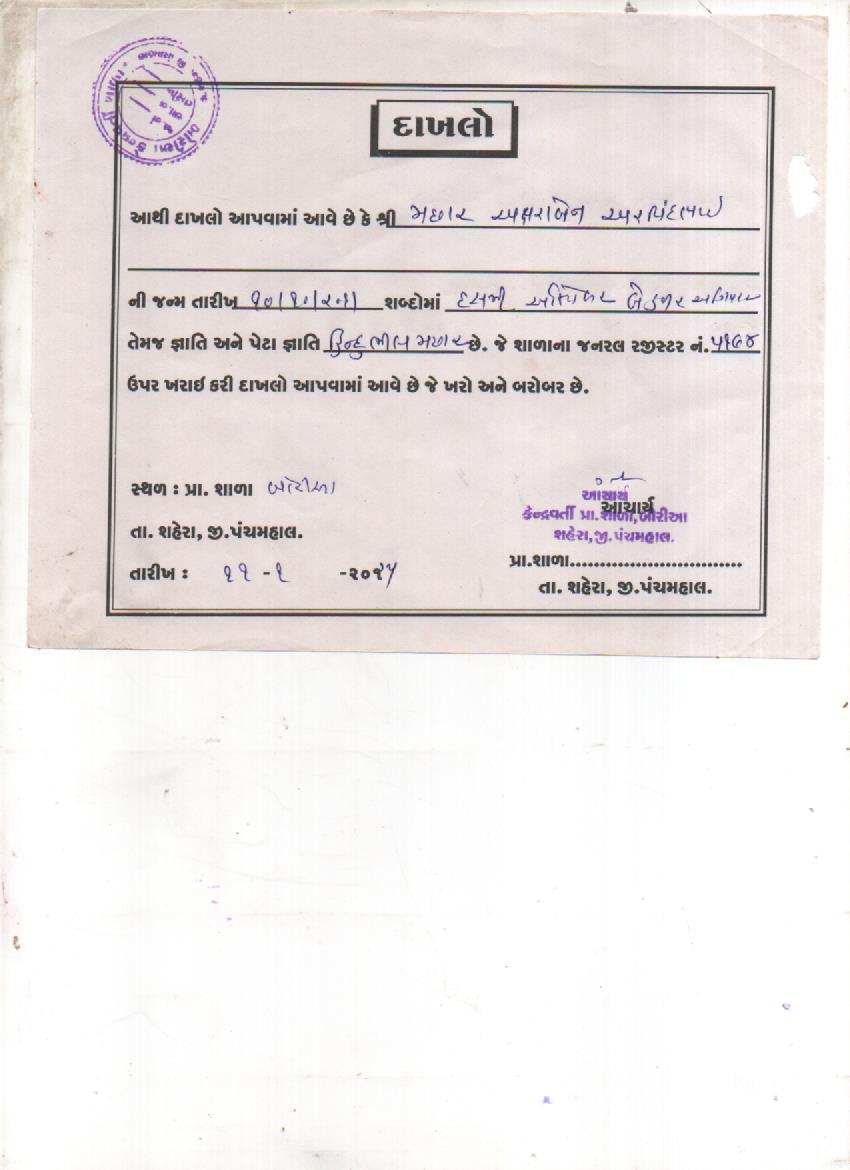 દાખલો
આથી દાખલો આપવામાં આવે છે કે શ્રી મછાર અક્ષરાબેન અરવિંદભાઈ
ની જન્મ તારીખ ૧૦/૧૦/૨૦૧૧ શબ્દોમાં દસમી ઓક્ટોબર બે હજાર અગિયાર
તેમજ જ્ઞાતિ અને પેટા જ્ઞાતિ હિન્દુ ભીલ મછાર છે. જે શાળાના જનરલ રજીસ્ટર નં. ૫૧૯૪
ઉપર ખરાઇ કરી દાખલો આપવામાં આવે છે જે ખરો અને બરોબર છે.
સ્થળ : પ્રા. શાળા બોરીઆ
આચાર્ય
આચાર્ય
કેન્દ્રવર્તી પ્રા.શાળા,બોરીઆ
તા. શહેરા, જી.પંચમહાલ.
શહેરા,જી.પંચમહાલ.
પ્રા.શાળા..............................
તારીખ : ૧૧ -૧ -૨૦૧૫
તા. શહેરા, જી.પંચમહાલ.